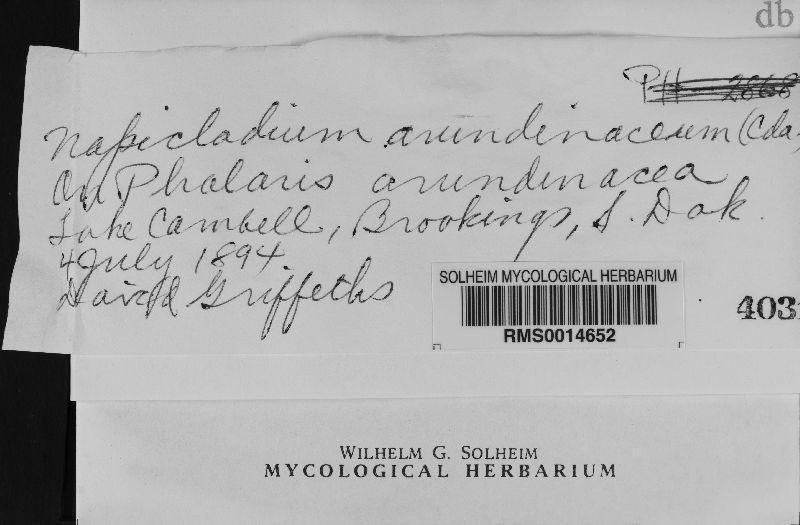 db
PH 2868
Napicladium arundinaceum (Cda
On Phalaris arundinacea
Lake Cambell, Brookings, S. Dak.
4 July 1894
David Griffeths
SOLHEIM MYCOLOGICAL HERBARIUM
RMS0014652
403
WILHELM G. SOLHEIM
MYCOLOGICAL HERBARIUM